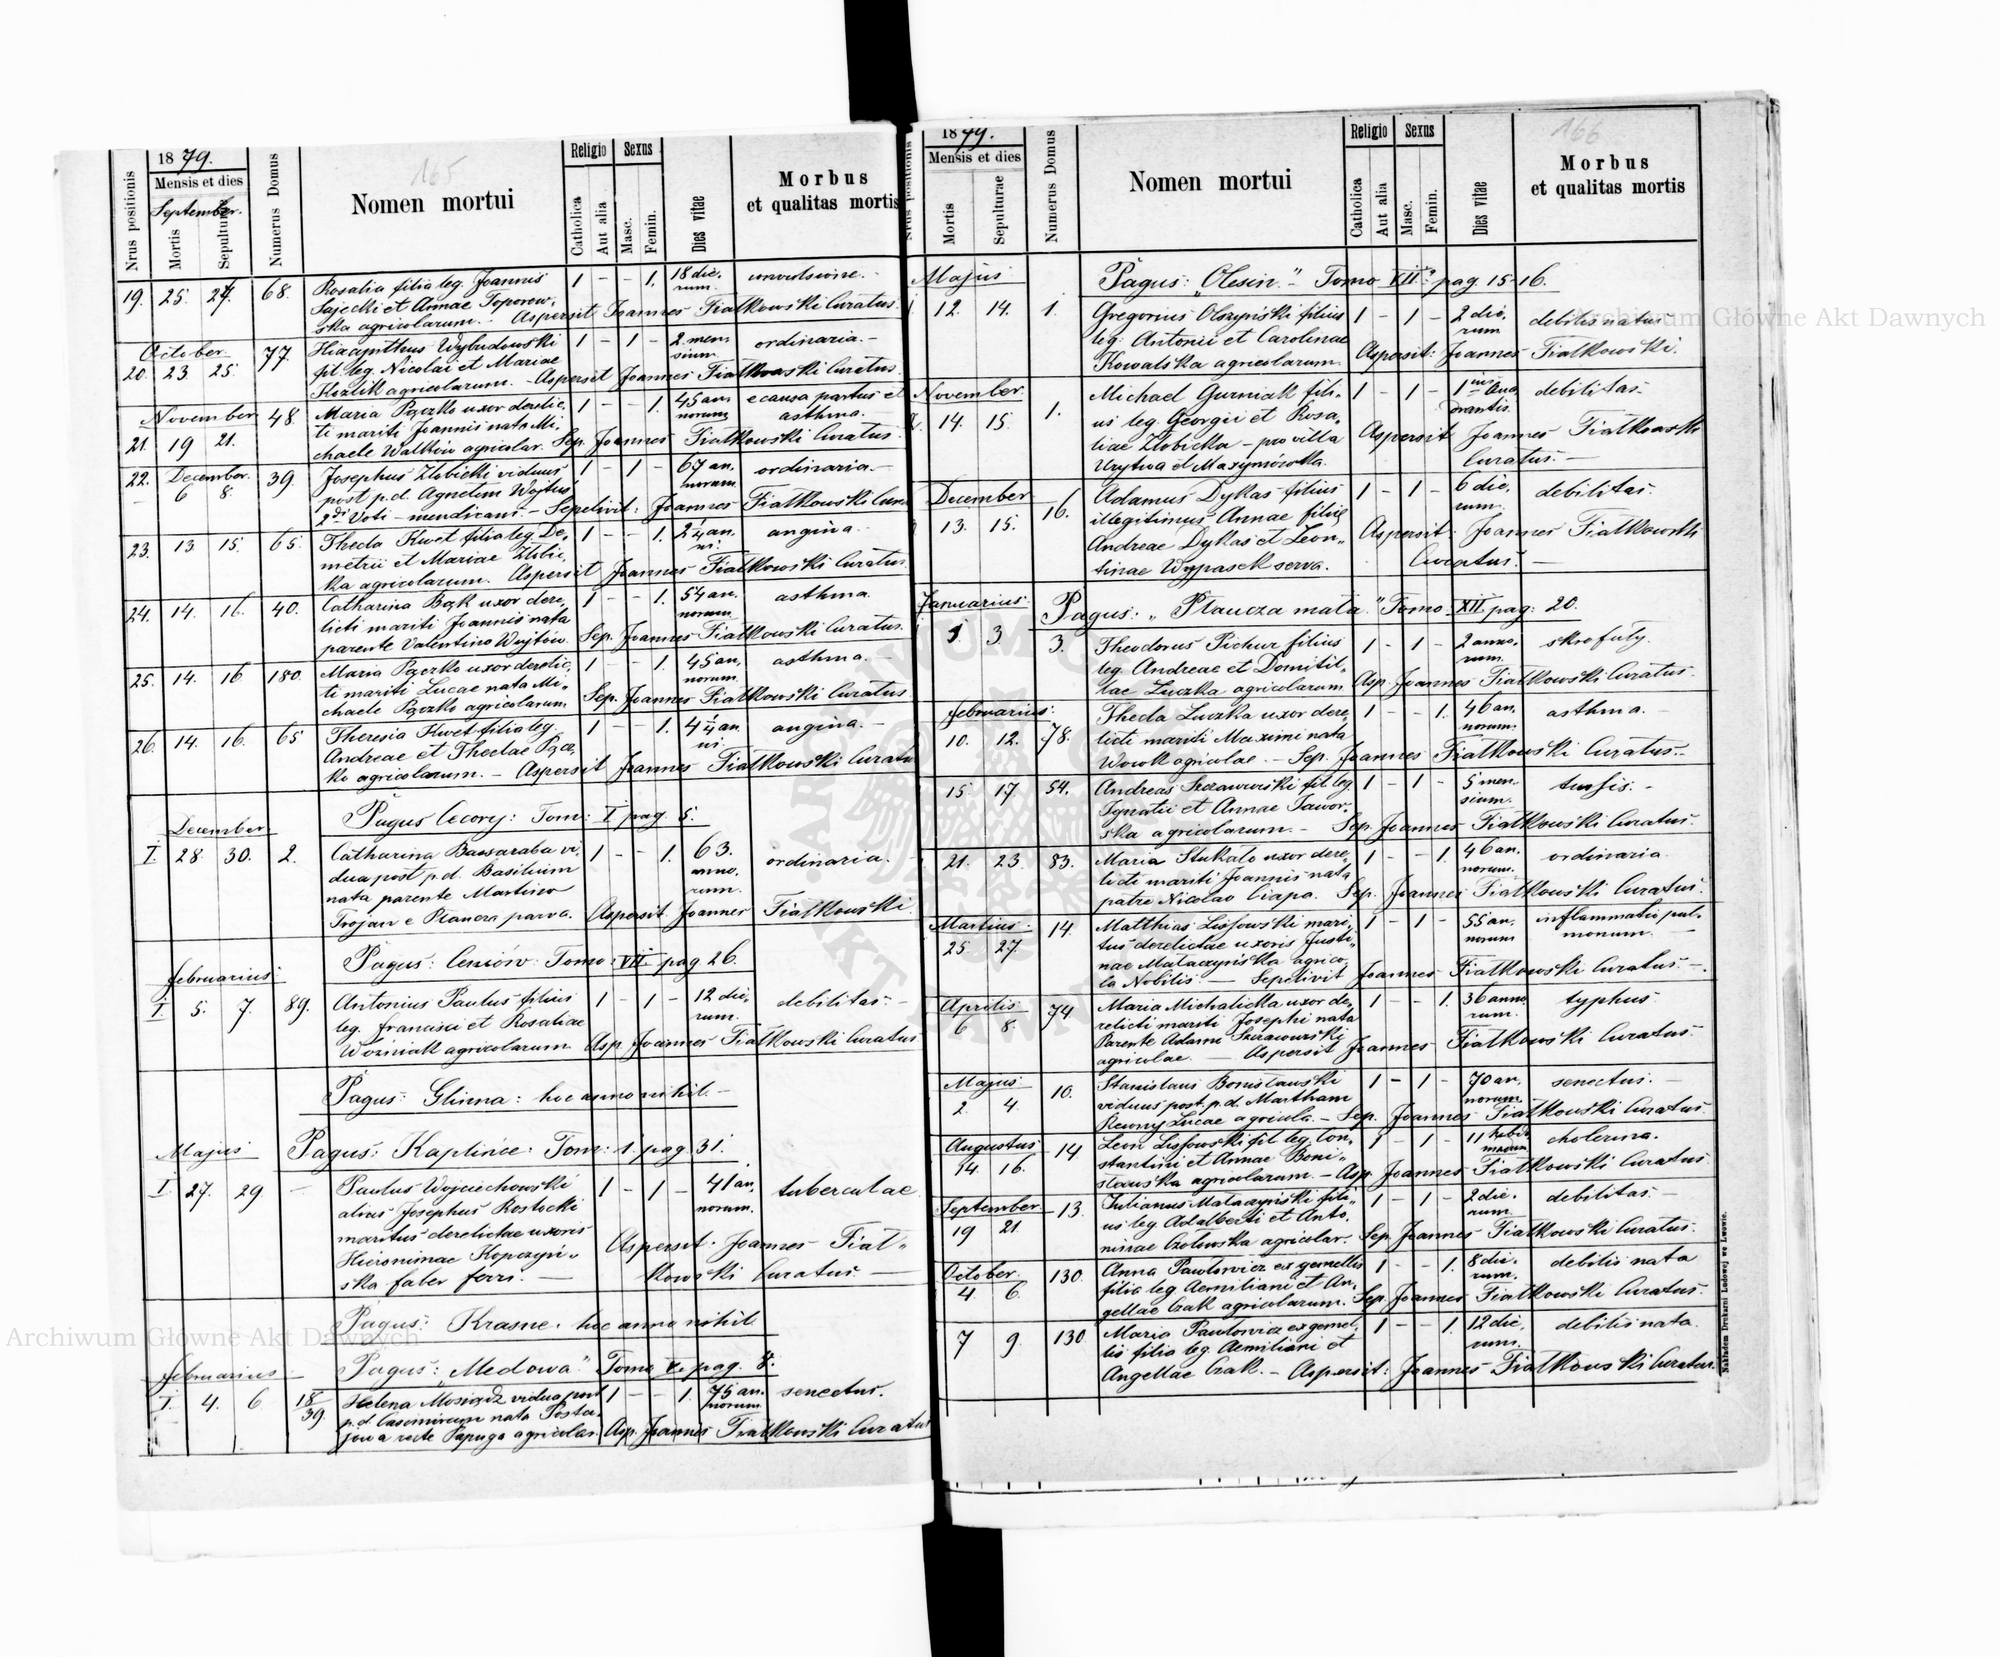 165
Nrus positionis
1879.
Mensis et dies
September.
Mortis
Sepulturae
Numerus Domus
Nomen mortui
Religio
Catholica
Aut alia
Sexus
Masc.
Femin.
Dies vitae
Morbus
et qualitas mortis
19. 25. 27. 68. Rosalia filia leg. Joannis 1 - - 1. 18 die,
rum.
et Annae Toporow,
ska agricolarum. - Aspersit Joannes Fiatkowski Curatus.
October.
20. 23 25. 77 Hiacynthus Wybudowski 1 - 1 - 2 men ordinaria. -
sium.
fil. leg. Nicolai et Mariae
Kozlik agricolarum. - Aspersit Joannes Fiatkowski Curatus.
November
21. 19 21. 48. Maria Pączko uxor derelic, 1 - - 1. 45 an e causa partus et
norum asthma.
ti mariti Joannis nata Mi,
chaele Walków agricolar. Sep. Joannes Fiatkowski Curatus.
22. December. 39. Josephus Złobicki viduus 1 - 1 - 67 an. ordinaria. -
norum.
6 8. post p.d. Agnetim Wojtus
2di Voti - mendicans. - Sepelivit: Joannes Fiatkowski Cura
23. 13. 15. 65. Thecla Kwet filia leg. De, 1 - - 1. 2 1/4 an. angina -
ni.
metrii et Mariae Złobic,
ka agricolarum. Aspersit Joannes Fiatkowski Curatus.
24. 14. 16. 40. Catharina Bąk uxor dere, 1 - - 1. 54 an. asthma.
norum.
licti mariti Joannis nata
parente Valentino Wujtów. Sep. Joannes Fiatkowski Curatus.
25. 14. 16 180. Maria Pączko uxor derelic, 1 - - 1. 45 an, asthma. -
norum.
ti mariti Lucae nata Mi,
chaele Pączko agricolarum Sep. Joannes Fiatkowski Curatus
26. 14. 16. 65 Theresia Kwet filia leg. 1 - - 1. 4 1/4 an. angina. -
ni.
Andreae et Theclae Pącz,
ko agricolarum. - Aspersit Joannes Fiatkowski Curatu
Pagus Cecory: Tom: I pag. 5.
December
I. 28. 30. 2. Catharina Bassaraba vi, 1 - - 1. 63. ordinaria. -
anno,
rum.
dua post p.d. Basilium
nata parente Martino
Trojan e Płaucza parva. Aspersit Joannes Fiatkowski.
Pagus: Ceniów: Tomo: VII. pag. 26.
Februarius
I. 5. 7. 89. Antonius Paulus filius 1 - 1 - 12 die, debilitas. -
rum.
leg. Francisci et Rosaliae
Woźniak agricolarum Asp. Joannes Fiatkowski Curatus
Pagus: Glinna: hoc anno nihil. -
Majus
Pagus: Kaplińce: Tom: 1. pag. 31.
I. 27. 29 - Paulus Wojciechowski 1 - 1 - 41 an, tuberculae
norum.
alias Josephus Rostocki
maritus derelictae uxoris
Hieronimae Kopczyń,
ska faber ferri. -
Aspersit. Joannes Fiat,
kowski Curatus. -
Pagus: Krasne. hoc anno nihil.
Februarius
Pagus: "Medowa" Tomo V. pag. 7.
I. 4. 6 18/39. Helena Mosiądz vidua post 1 - - 1. 75 an. senectus.
norum
p.d. Casimirum nata
recte Papuga agricolar. Asp. Joannes Fiatkowski Curatus
166
Nrus positionis
1879.
Mensis et dies
Mortis
Sepulturae
Numerus Domus
Nomen mortui
Religio
Catholica
Aut alia
Sexus
Masc.
Femin.
Dies vitae
Morbus
et qualitas mortis
Majus
Pagus: "Olesin." - Tomo VII. pag. 15-16.
12. 14. 1. Gregorius Olszyński filius 1 - 1 - 2 die, debilis natus -
rum
leg. Antonii et Carolinae
Kowalska agricolarum. Aspersit: Joannes Fiatkowski.
November.
14. 15. 1. Michael Gurniak fili, 1 - 1 - 1ius Qua, debilitas. -
drantis.
us leg. Georgii et Rosa,
liae Złobicka - pro villa
Urytwa et Maxymówka.
Aspersit Joannes Fiatkowski
Curatus. -
December
13. 15. 16. Adamus Dykas filius 1 - 1 - 6 die, debilitas.
rum.
illegitimus Annae filię
Andreae Dykas et Leon,
tinae Wypasek serva.
Aspersit: Joannes Fiatkowski
Curatus. -
Januarius.
Pagus: "Płaucza mała." Tomo: XII. pag: 20.
1 3 3. Theodorus Pichur filius 1 - 1 - 2 anno, skrofuły.
rum.
leg. Andreae et Domitil,
lae Luczka agricolarum Asp. Joannes Fiatkowski Curatus.
Februarius.
10. 12. 78. Thecla Luczka uxor dere, 1 - - 1. 46 an. asthma. -
norum.
licti mariti Maximi nata
Wowk agricolae. - Sep. Joannes Fiatkowski Curatus. -
15 17 54. Andreas Szczawurski fil. leg. 1 - 1 - 5 men. tussis. -
sium.
Ignatii et Annae Jawor,
ska agricolarum. - Sep. Joannes Fiatkowski Curatus.
21. 23. 83. Maria Stukało uxor dere, 1 - - 1. 46 an. ordinaria.
norum.
licti mariti Joannis nata
patre Nicolao Ciapa. Sep. Joannes Fiatkowski Curatus.
Martius.
25. 27. 14. Matthias Lissowski mari, 1 - 1 - 55 an, inflammatio pul,
norum monum.
tus derelictae uxoris Justi,
nae Mataczyńska agrico,
la Nobilis. - Sepelivit Joannes Fiatkowski Curatus. -
Aprilis
6 8. 74 Maria Michalicka uxor de, 1 - - 1. 36 anno typhus.
rum.
relicti mariti Josephi nata
Parente Adami Szczawurski
agricolae. - Aspersit Joannes Fiatkowski Curatus.
Majus
2. 4. 10. Stanislaus Bonisławski 1 - 1 - 70 an. senectus. -
norum
viduus post. p.d. Martham
Lucae agricola. - Sep. Joannes Fiatkowski Curatus.
Augustus
14. 16. 14 Leon Lissowski fil. leg. Con, 1 - 1 - 11 hebdo, cholerina.
madum
stantini et Annae Boni,
sławska agricolarum. - Asp. Joannes Fiatkowski Curatus.
September
19 21. 13. Julianus Mataczyński fili, 1 - 1 - 2 die. debilitas. -
rum.
us leg. Adalberti et Anto,
ninae Czołowska agricolar. Sep. Joannes Fiatkowski Curatus.
October.
4 6. 130. Anna Pawłowicz ex gemellis 1 - - 1. 8 die. debilis nata
rum.
filia leg. Aemiliani et An,
gellae Czak agricolarum. Sep. Joannes Fiatkowski Curatus.
7 9. 130 Maria Pawłowicz ex gemel, 1 - - 1. 12 die, debilis nata.
rum.
lis filia leg. Aemiliani et
Angellae Czak. - Aspersit: Joannes Fiatkowski Curatus.
Nakładem Drukarni Ludowej we Lwowie.
Archiwum Główne Akt Dawnych
Archiwum Główne Akt Dawnych